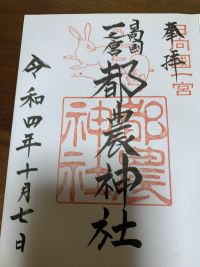 奉拝
日向国
一之宮
都農神社
令和四年十月七日
都農
神社